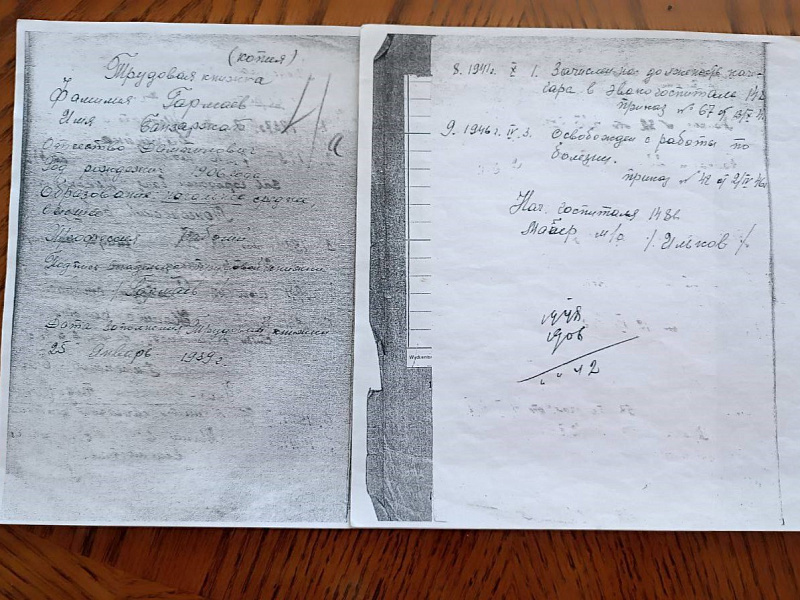 (копия)
Трудовая книжка
Фамилия Гармаев
Имя
Отчество
Год рождения 1906 года
Образование: начальное, среднее,
высшее
Профессия Рабочий
Подпись владельца трудовой книжки
/ Гармаев
Дата заполнения Трудовой книжки
25 Январь 1939 г
8. 1941 г. X 1. Зачислен на должность
в эвакогоспиталь 1486
приказ № 67 от
9. 1946 г. IV. 3. Освобожден с работы по
болезни.
приказ № 42 от 2/IV 46
Нач. госпиталя 1486
Майор м/с / Ильков /
1948
1906
42